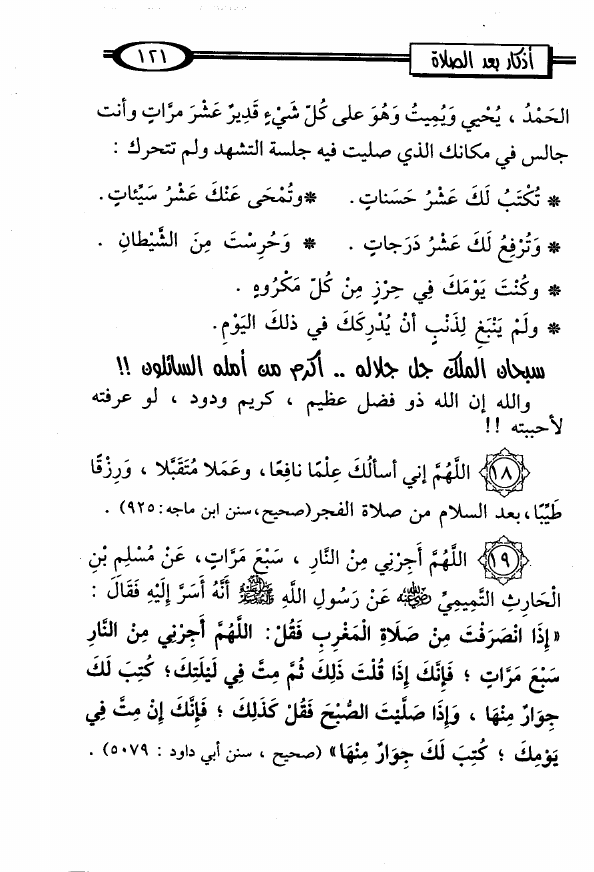 أذكار بعد الصلاة ١٢١
الحَمْدُ ، يُحْيي وَيُمِيتُ وَهُوَ على كُلِّ شَيْءٍ قَدِيرٌ عَشْرَ مرَّاتٍ وأنت
جالس في مكانك الذي صليت فيه جلسة التشهد ولم تتحرك :
* تُكْتَبُ لَكَ عَشْرُ حَسَناتٍ. *وتُمْحَى عَنْكَ عَشْرُ سَيِّئاتٍ.
* وَتُرْفِعُ لَكَ عَشْرُ دَرَجاتٍ . * وَحُرِسْتَ مِنَ الشَّيْطانِ .
* وكُنْتَ يَوْمَكَ فِي حِرْزٍ مِنْ كُلِّ مَكْرُوهٍ .
* ولَمْ يَنْبَغِ لِذَنْبٍ أنْ يُدْرِكَكَ في ذلكَ اليَوْمِ.
سبحان الملك جل جلاله .. أكرم من أمله السائلون !!
والله إن الله ذو فضل عظيم ، كريم ودود ، لو عرفته
لأحببته !!
١٨ اللَّهُمَّ إني أسألُكَ عِلْمًا نافِعًا، وعَمَلا مُتَقَبَّلا ، وَرِزْقًا
طَيِّبًا، بعد السلام من صلاة الفجر(صحيح، سنن ابن ماجه: ٩٢٥) .
١٩ اللَّهُمَّ أَجِرْنِي مِنَ النَّارِ ، سَبْعَ مَرَّاتٍ، عَنْ مُسْلِمِ بْنِ
الْحَارِثِ التَّمِيمِيِّ رضي الله عنه عَنْ رَسُولِ اللَّهِ ﷺ أَنَّهُ أَسَرَّ إِلَيْهِ فَقَالَ :
«إِذَا انْصَرَفْتَ مِنْ صَلَاةِ الْمَغْرِبِ فَقُلْ: اللَّهُمَّ أَجِرْنِي مِنَ النَّارِ
سَبْعَ مَرَّاتٍ ؛ فَإِنَّكَ إِذَا قُلْتَ ذَلِكَ ثُمَّ مِتَّ فِي لَيْلَتِكَ؛ كُتِبَ لَكَ
جِوَارٌ مِنْهَا ، وَإِذَا صَلَّيْتَ الصُّبْحَ فَقُلْ كَذَلِكَ ؛ فَإِنَّكَ إِنْ مِتَّ فِي
يَوْمِكَ ؛ كُتِبَ لَكَ جِوَارٌ مِنْهَا» (صحيح ، سنن أبي داود : ٥٠٧٩) .